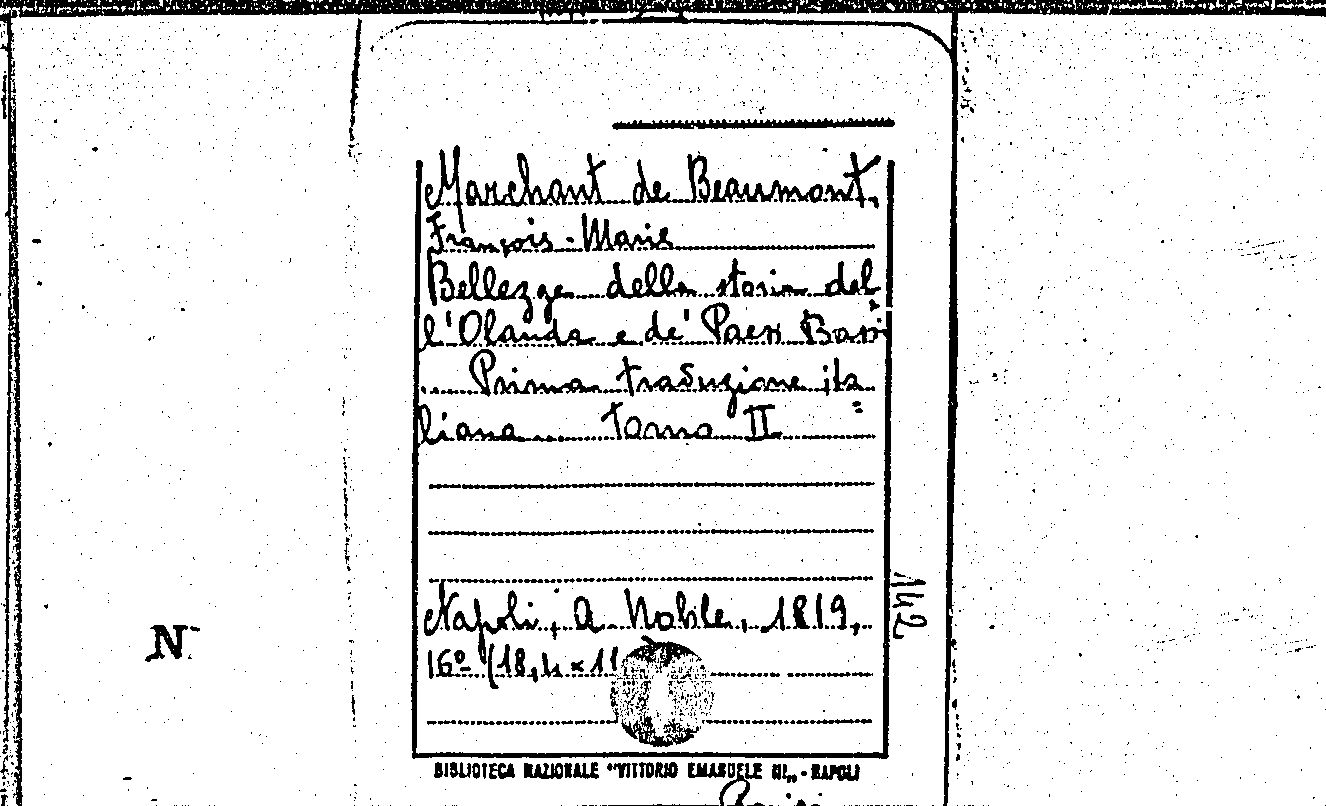 Marchant de Beaumont,
François-Marie
Bellezze della storia del
l'Olanda e de' Paesi Bassi
... Prima traduzione ita
=
liana... tomo II
Napoli, A. Nobile, 1819,
16º (18,4 x 11
142
N
BIBLIOTECA NAZIONALE "VITTORIO EMANUELE III„ - NAPOLI